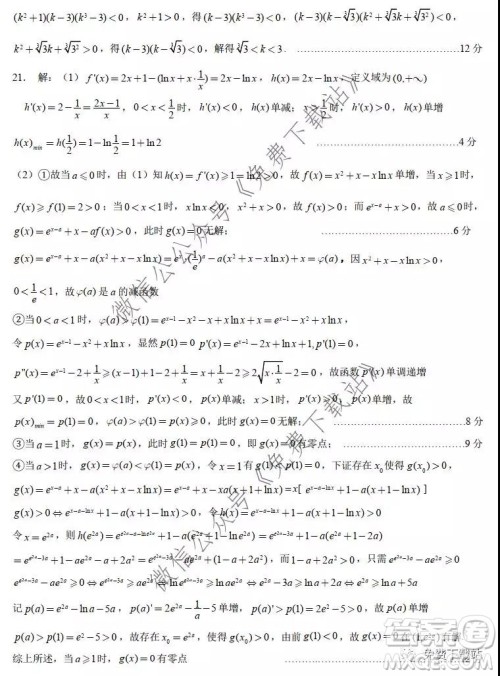 (k²+1)(k-3)(k³-3)<0, k²+1>0, 得(k-3)(k³-3)<0, 即(k-3)(k-∛3)(k²+∛3k+∛3²)<0,
k²+∛3k+∛3²>0, 得(k-3)(k-∛3)<0, 解得∛3<k<3. 12分
21. 解:(1) f'(x)=2x+1-(lnx+x·1/x)=2x-lnx, h(x)=2x-lnx 定义域为(0,+∞)
h'(x)=2-1/x=(2x-1)/x, 0<x<1/2时, h'(x)<0, h(x)单减; x>1/2时, h'(x)>0, h(x)单增
h(x)min=h(1/2)=1-ln1/2=1+ln2 4分
(2)①故当a⩽0时, 由(1)知h(x)=f'(x)⩾1=ln2>0, 故f(x)=x²+x-xlnx单增, 当x⩾1时,
f(x)⩾f(1)=2>0; 当0<x<1时, xlnx<0, x²+x>0, 故f(x)>0; 而e^(x-a)+x>0, 故a⩽0时,
g(x)=e^(x-a)+x-af(x)>0, 此时g(x)=0无解; 6分
g(x)=e^(x-a)+x-a(x²+x-xlnx)=e^x(1/e)^a-a(x²+x-xlnx)+x=φ(a), 因x²+x-xlnx>0,
0<1/e<1, 故φ(a)是a的减函数
②当0<a<1时, φ(a)>φ(1)=e^(x-1)-x²-x+xlnx+x=e^(x-1)-x²+xlnx,
令p(x)=e^(x-1)-x²+xlnx, 显然p(1)=0 p'(x)=e^(x-1)-2x+lnx+1, p'(1)=0,
p''(x)=e^(x-1)-2+1/x⩾(x-1)+1-2+1/x=x+1/x-2⩾2√(x·1/x)-2=0, 故函数p'(x)单调递增
又p'(1)=0, 故0<x<1时, p'(x)<0, p(x)单减; x>1时, p'(x)>0, p(x)单增, 故
p(x)min=p(1)=0, 故φ(a)>φ(1)=p(x)⩾0, 此时g(x)=0无解; 8分
③当a=1时, g(x)=p(x), 此时g(1)=p(1)=0, 即g(x)=0有零点; 9分
④当a>1时, g(x)=φ(a)<φ(1)=p(x), 令x=1有g(1)<p(1)=0, 下证存在x₀使得g(x₀)>0,
g(x)=e^(x-a)+x-a(x²+x-xlnx)=e^(x-a)+x[1-a(x+1-lnx)]=x[e^(x-a-lnx)+1-a(x+1-lnx)]
令x=e^(2a), 则h(e^(2a))=e^(e^(2a)-a-lne^(2a))+1-a(e^(2a)+1-lne^(2a))
=e^(e^(2a)-3a)+1-ae^(2a)-a+2a²=e^(e^(2a)-3a)-ae^(2a)+(1-a+2a²), 而1-a+2a²>0, 只需e^(e^(2a)-3a)-ae^(2a)⩾0
e^(e^(2a)-3a)-ae^(2a)⩾0⇔e^(e^(2a)-3a)⩾ae^(2a)⇔e^(2a)-3a⩾ln(ae^(2a))=lna+2a⇔e^(2a)⩾lna+5a
记p(a)=e^(2a)-lna-5a, p(a)'=2e^(2a)-1/a-5单增, p(a)'>p(1)'=2e²-6>0, p(a)单增,
故p(a)>p(1)=e²-5>0, 故存在x₀=e^(2a), 使得g(x₀)>0, 由g(1)<0, 故
综上所述, 当a⩾1时, g(x)=0有零点
微信公众号《免费下载站》